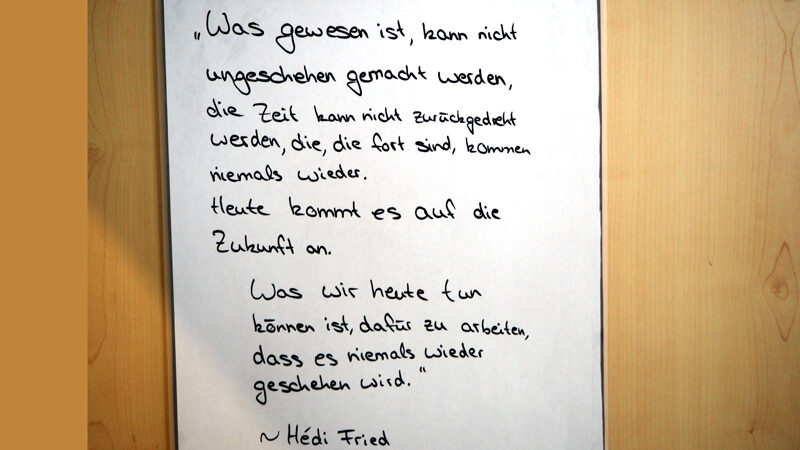 „Was gewesen ist, kann nicht
ungeschehen gemacht werden,
die Zeit kann nicht zurückgedreht
werden, die, die fort sind, kommen
niemals wieder.
Heute kommt es auf die
Zukunft an.
Was wir heute tun
können ist, dafür zu arbeiten,
dass es niemals wieder
geschehen wird."
~ Hédi Fried